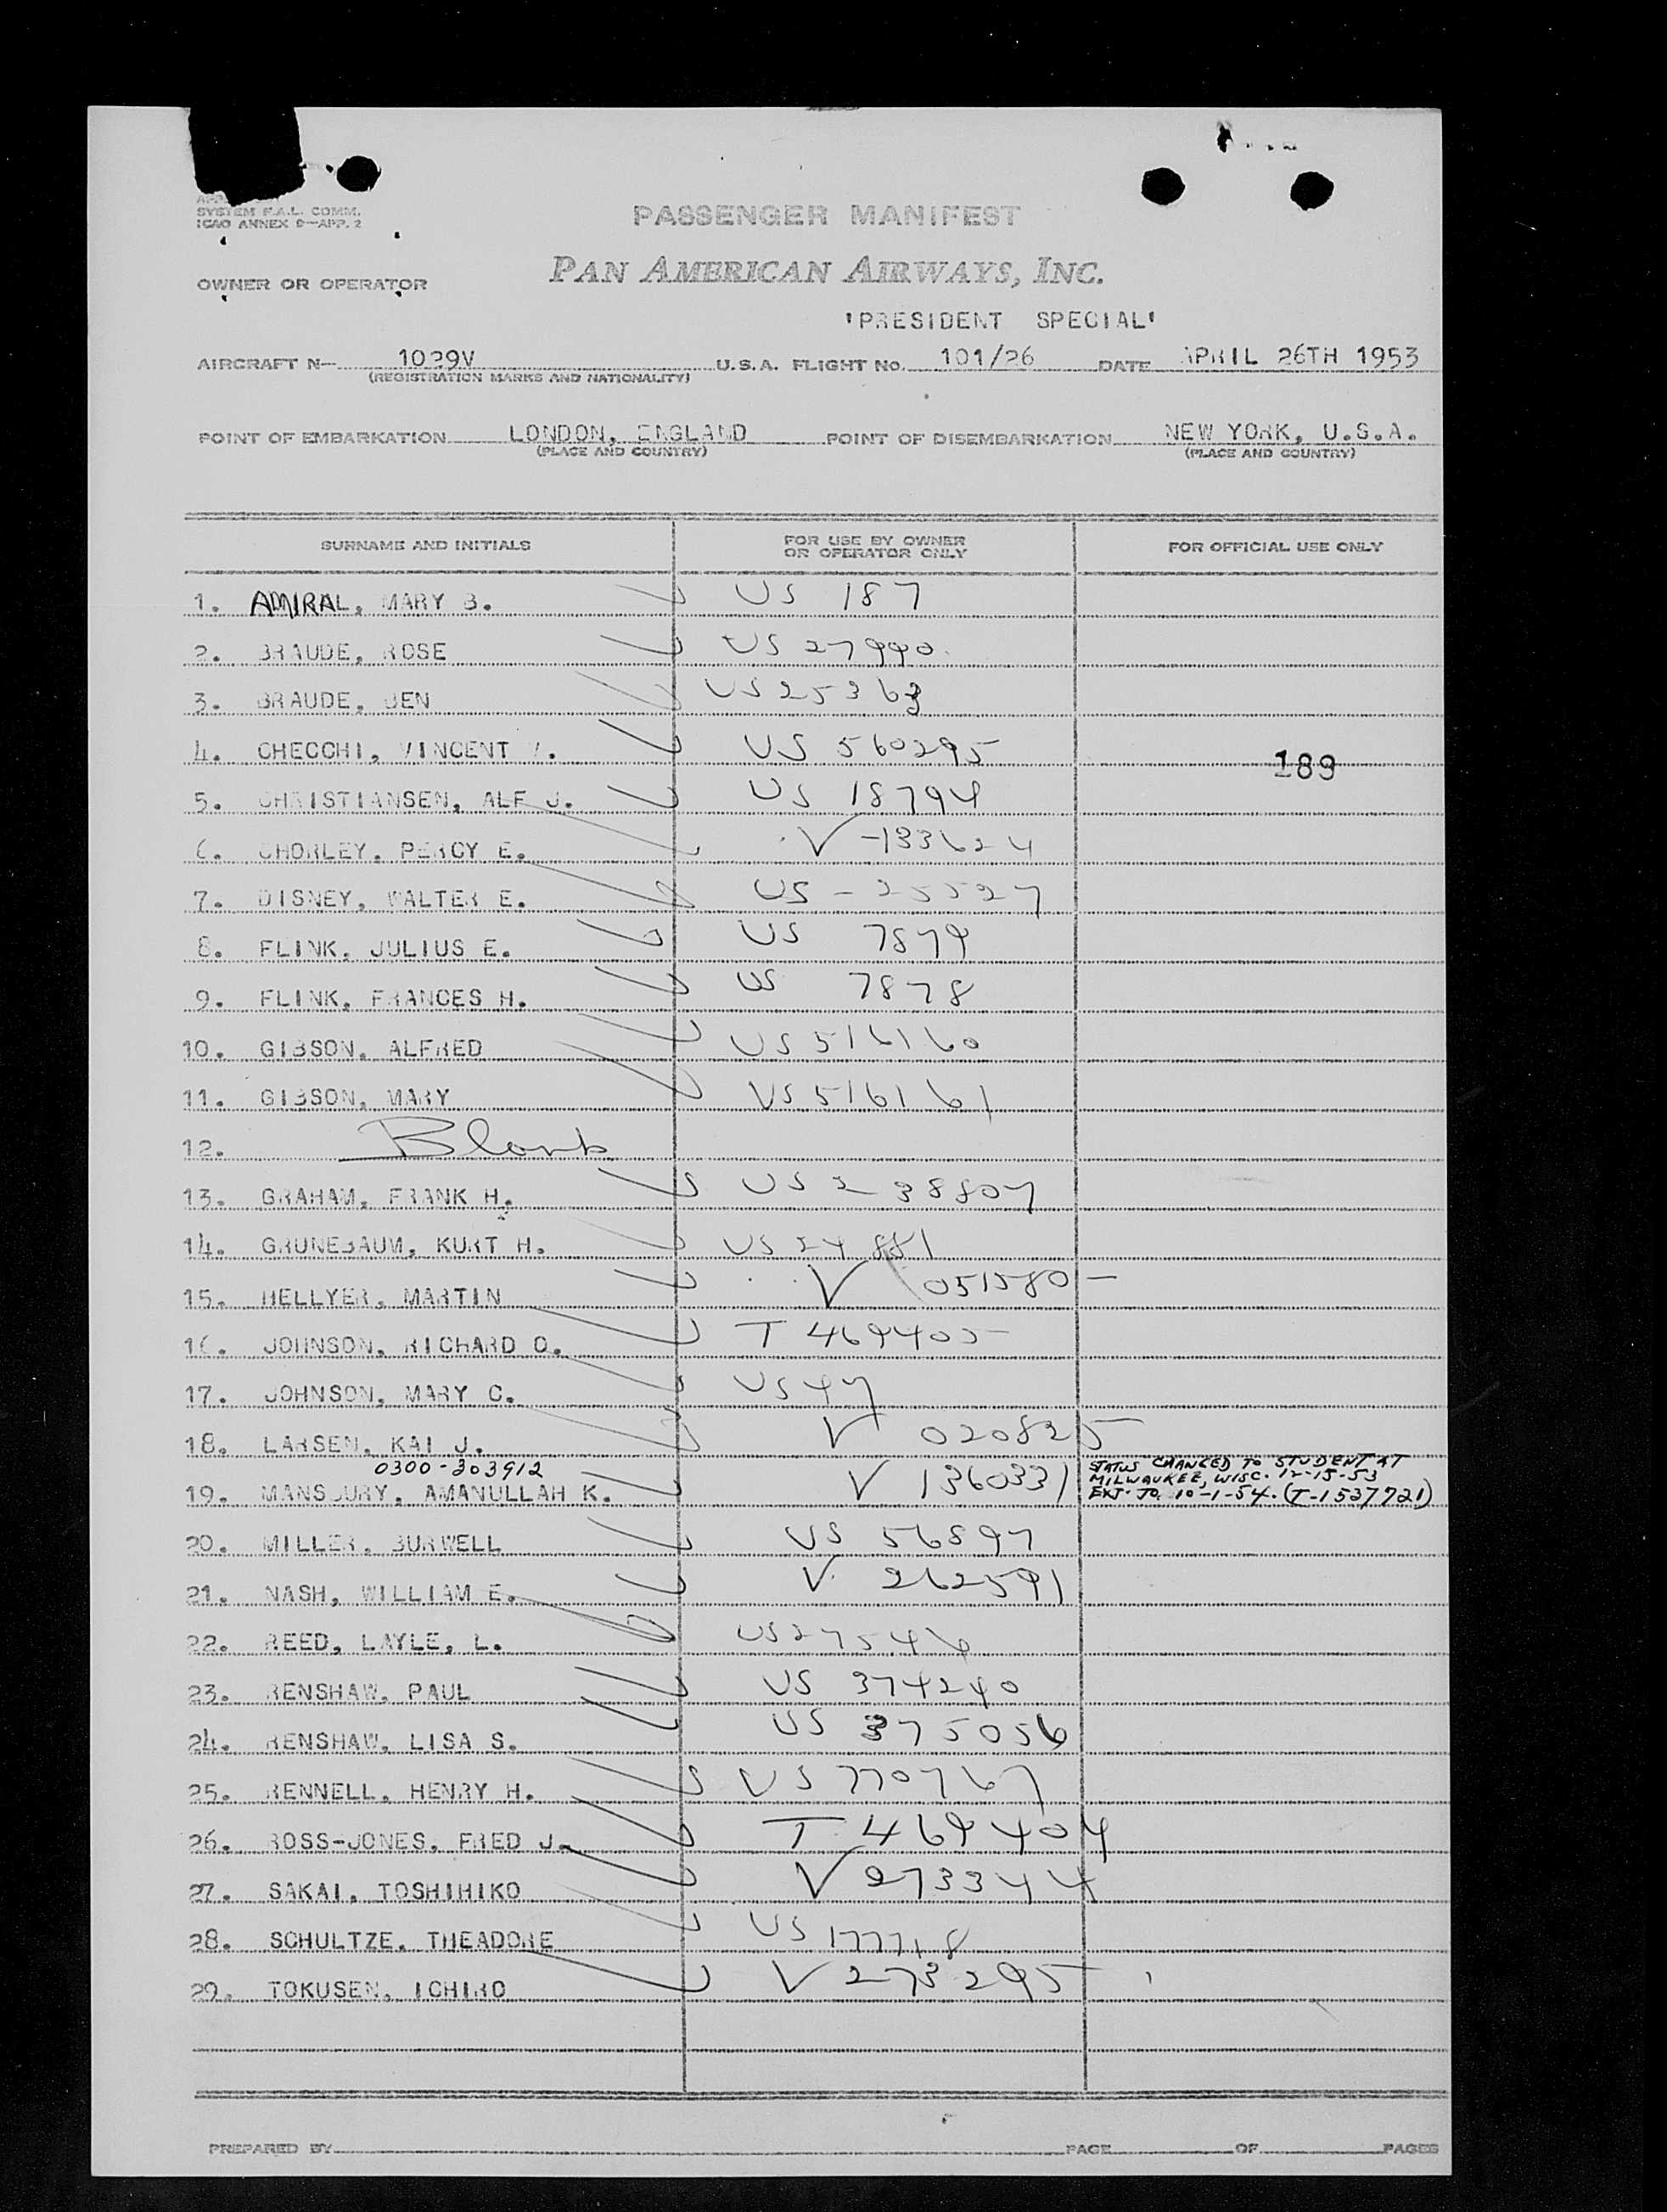 SYSTEM F.A.L. COMM.
ICAO ANNEX 9—APP. 2
PASSENGER MANIFEST
OWNER OR OPERATOR PAN AMERICAN AIRWAYS, INC.
'PRESIDENT SPECIAL'
AIRCRAFT N— 1029V U.S.A. FLIGHT No. 101/26 DATE APRIL 26TH 1953
(REGISTRATION MARKS AND NATIONALITY)
POINT OF EMBARKATION LONDON, ENGLAND POINT OF DISEMBARKATION NEW YORK, U.S.A.
(PLACE AND COUNTRY) (PLACE AND COUNTRY)
SURNAME AND INITIALS FOR USE BY OWNER OR OPERATOR ONLY FOR OFFICIAL USE ONLY
1. AMIRAL, MARY B. US 187
2. BRAUDE, ROSE US 27990
3. BRAUDE, BEN US 25363
4. CHECCHI, VINCENT V. US 560295
189
5. CHRISTIANSEN, ALF J. US 18794
6. CHORLEY, PERCY E. V-133624
7. DISNEY, WALTER E. US - 25527
8. FLINK, JULIUS E. US 7879
9. FLINK, FRANCES H. US 7878
10. GIBSON, ALFRED US 516160
11. GIBSON, MARY US 516161
12. Blank
13. GRAHAM, FRANK H. US 238807
14. GRUNEBAUM, KURT H. US 24881
15. HELLYER, MARTIN V 051580 —
16. JOHNSON, RICHARD O. T 469405
17. JOHNSON, MARY C. US 47
18. LARSEN, KAI J. V 020825
0300-303912
19. MANSOURY, AMANULLAH K. V 1360331
STATUS CHANGED TO STUDENT AT
MILWAUKEE, WISC. 12-15-53
EXT. TO 10-1-54. (T-1537721)
20. MILLER, BURWELL US 56897
21. NASH, WILLIAM E. V 262591
22. REED, LAYLE, L. US 27546
23. RENSHAW, PAUL US 374240
24. RENSHAW, LISA S. US 375056
25. RENNELL, HENRY H. US 770767
26. ROSS-JONES, FRED J. T 469404
27. SAKAI, TOSHIHIKO V 273344
28. SCHULTZE, THEADORE US 177718
29. TOKUSEN, ICHIRO V 273295
PREPARED BY PAGE OF PAGES